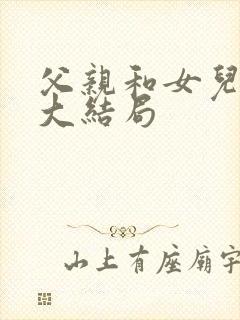 父親和女兒
大結局
山上有座廟宇